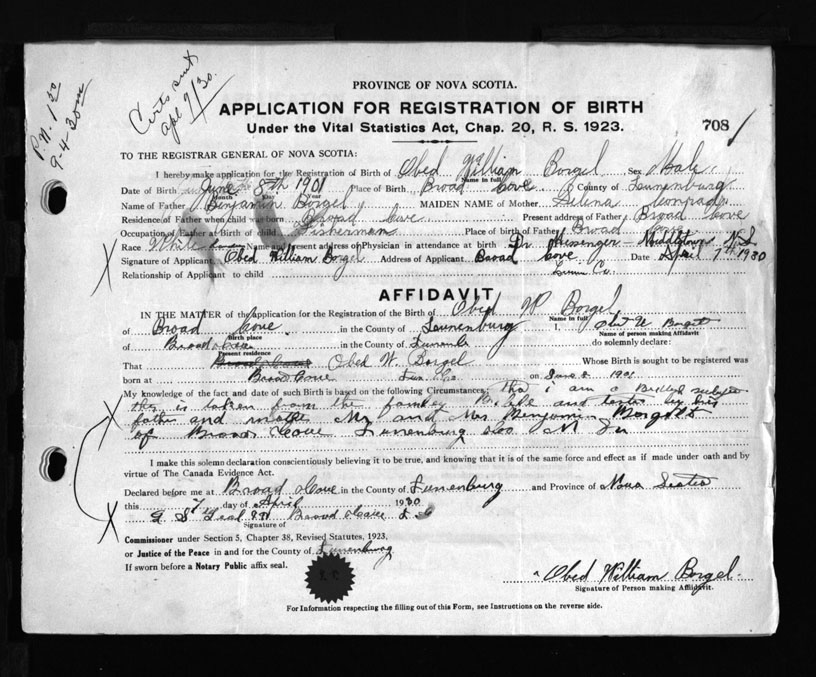 Certs sent
apl 9/30.
P.N. 1.50
9-4-30
PROVINCE OF NOVA SCOTIA.
APPLICATION FOR REGISTRATION OF BIRTH
Under the Vital Statistics Act, Chap. 20, R. S. 1923.
708
TO THE REGISTRAR GENERAL OF NOVA SCOTIA:
I hereby make application for the Registration of Birth of Obed William Borgel Sex Male
Name in full
Date of Birth June 8th 1901 Place of Birth Broad Cove County of Lunenburg
Month Day Year
Name of Father Benjamin Borgel MAIDEN NAME of Mother Selena Conrad
Residence of Father when child was born Broad Cove Present address of Father Broad Cove
Occupation of Father at Birth of child Fisherman Place of birth of Father Broad Cove
Race White Name and present address of Physician in attendance at birth Dr Messenger - Middleton N.S.
Signature of Applicant Obed William Borgel Address of Applicant Broad Cove Date April 7th 1930
Relationship of Applicant to child Lunn Co.
AFFIDAVIT
IN THE MATTER of the application for the Registration of the Birth of Obed W Borgel
Name in full
of Broad Cove in the County of Lunenburg I, Obed W Borgel
Birth place Name of person making Affidavit
of Broad Cove in the County of do solemnly declare:
Present residence
That Obed W. Borgel Whose Birth is sought to be registered was
born at Broad Cove Lun. Co. on June 8 1901
My knowledge of the fact and date of such Birth is based on the following Circumstances: that i am a British subject
this is taken from the family Bible and by his
father and mother Mr and Mrs Benjamin Borgelt
of Broad Cove Lunenburg Coo
I make this solemn declaration conscientiously believing it to be true, and knowing that it is of the same force and effect as if made under oath and by
virtue of The Canada Evidence Act.
Declared before me at Broad Cove in the County of Lunenburg and Province of Nova Scotia
this 7 day of April 1930
Broad Cove
Signature of
Commissioner under Section 5, Chapter 38, Revised Statutes, 1923,
or Justice of the Peace in and for the County of Lunenburg
If sworn before a Notary Public affix seal.
Obed William Borgel
Signature of Person making Affidavit.
For Information respecting the filling out of this Form, see Instructions on the reverse side.